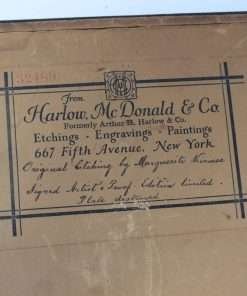 32450
From
Harlow, McDonald & Co.
Formerly Arthur H. Harlow & Co.
Etchings - Engravings - Paintings
667 Fifth Avenue, New York
Original Etching by Marguerite Kirmse
Signed Artist's Proof. Edition limited.
Plate destroyed